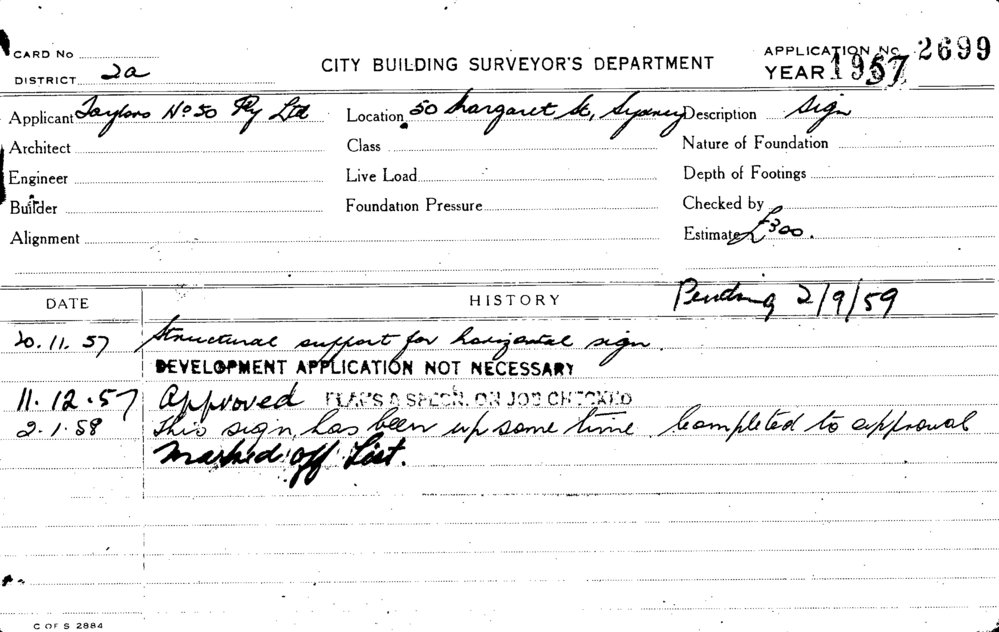 CARD No
DISTRICT 2a
CITY BUILDING SURVEYOR'S DEPARTMENT
APPLICATION No. 2699
YEAR 1957
Applicant Taylors No 50 Pty Ltd
Location 50 Margaret St, Sydney
Description Sign
Architect
Class
Nature of Foundation
Engineer
Live Load
Depth of Footings
Builder
Foundation Pressure
Checked by
Alignment
Estimate £300.
DATE
HISTORY
Pending 2/9/59
20.11.57 Structural support for horizontal sign.
DEVELOPMENT APPLICATION NOT NECESSARY
11.12.57 Approved PLANS & SPECN. ON JOB CHECKED
2.1.58 This sign has been up some time. Completed to approval
Marked off List.
C OF S 2884